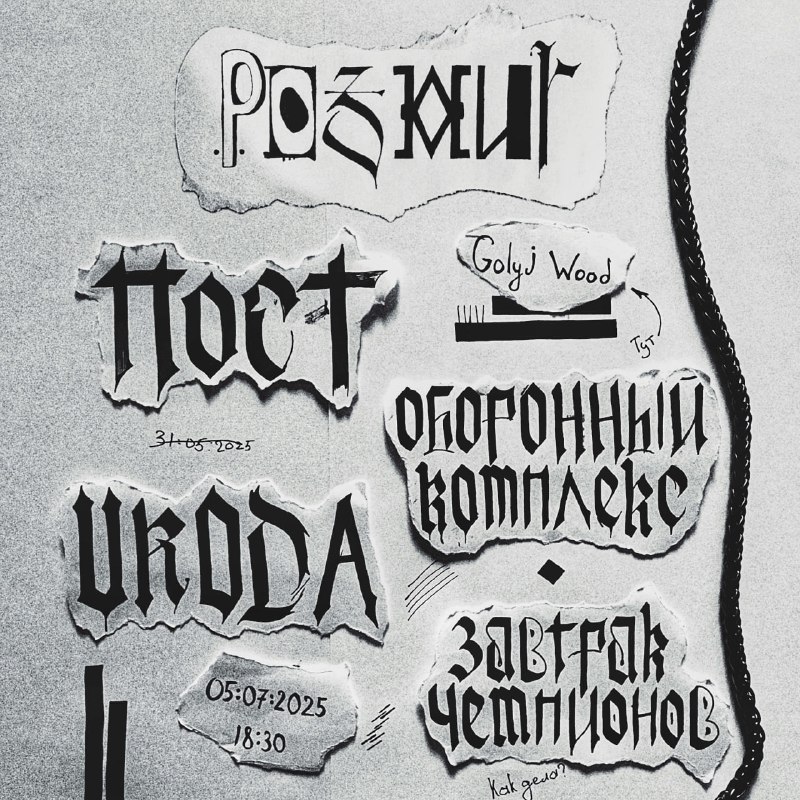 РОЗЖИГ
ПОСТ
Golyj Wood
Тут
31.05.2025
ОБОРОННЫЙ
КОМПЛЕКС
ИКОDА
ЗАВТРАК
ЧЕМПИОНОВ
05:07:2025
18:30
Как дела?